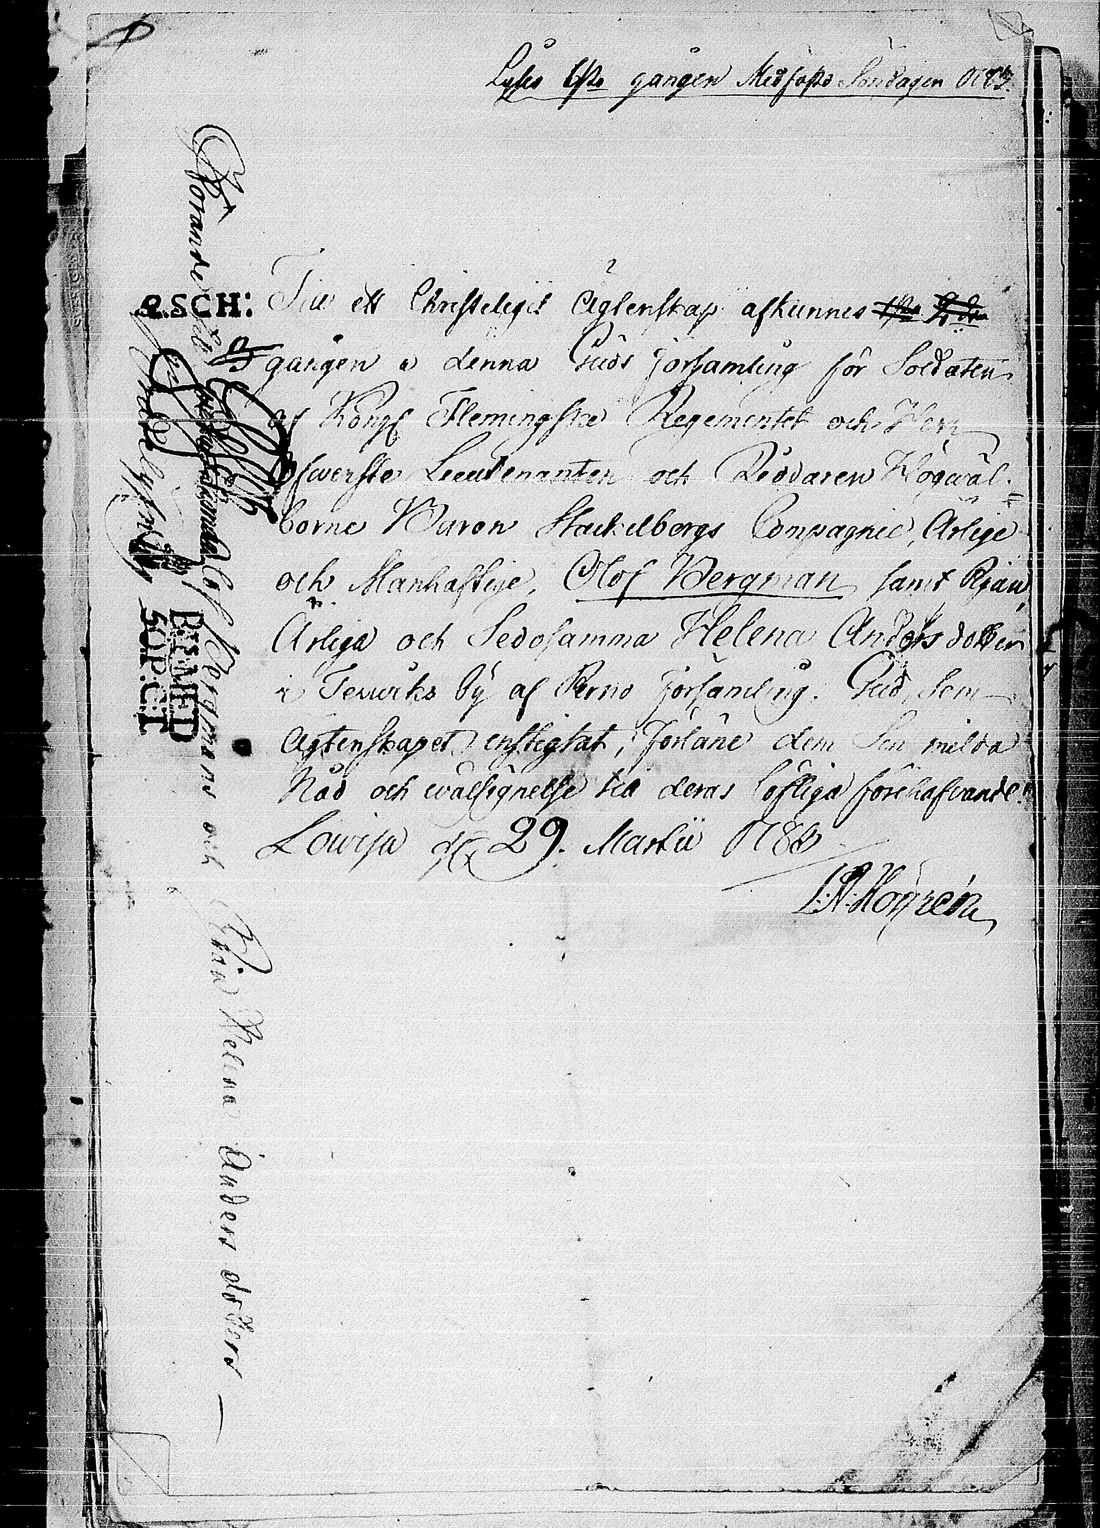 Lyses 1sta gången Midfasto Söndagen 1783.
Till ett Christeligit Ägtenskap afkunnes 1sta
gången i denna Guds församling för Soldaten
af Kongl Flemingska Regementet och Herr
Öfwerste Lieutenanten och Riddaren Högwäl-
borne Baron Stackelbergs Compagnie, Ärlige
och Manhaftige, Olof Bergman samt Pigan,
Ärliga och Sedosamma Helena Anders dotter
i Terwiks By af Perno församling. Gud, som
Ägtenskapet instigtat, förläne dem sin milda
Nåd och wälsignelse till deras löfliga förehafvande!
Lowisa d. 29. Martii 1783
Rörande
Bergmans och Pigan Helena Anders dotters